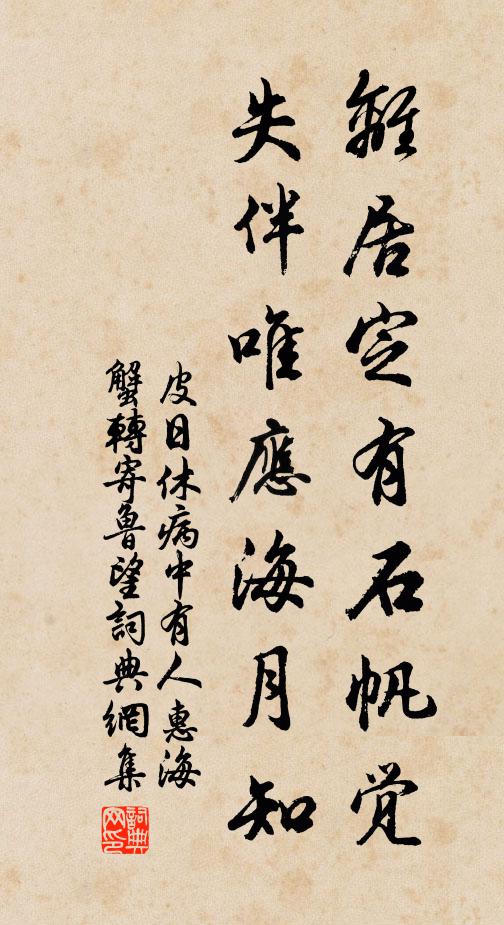 離居定有石帆覺
失伴唯應海月知
皮日休病中有人惠海
蟹轉寄魯望詞典網集
詞典
网印